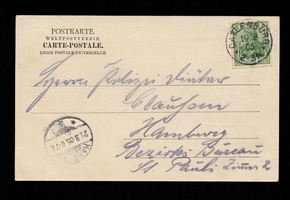 POSTKARTE.
WELTPOSTVEREIN.
CARTE-POSTALE.
UNION POSTALE UNIVERSELLE.
Herrn Polizei
Claussen
Hamburg
Bezirks Bureau
St Pauli Zimmer 2